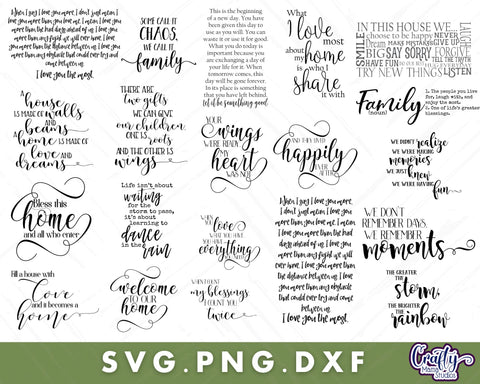 When I say I love you more, I don't just mean, I love you
more than the bad days ahead of us, I love you
more than any fight we will ever have. I love you
more than the distance between us, I love you
more than any obstacle that could ever try and
come between us.
I love you the most.
SOME CALL IT
CHAOS,
WE CALL IT
family
This is the beginning
of a new day. You have
been given this day to
use as you will. You can
waste it or use it for good.
What you do today is
important because you
are exchanging a day of
your life for it. When
tomorrow comes, this
day will be gone forever.
In its place is something
that you have left behind.
let it be something good.
What
I love
most
about
my home
is who I
share
it with
IN THIS HOUSE WE...
SMILE
choose to be happy NEVER
Dream MAKE MISTAKES GIVE UP
BIG SAY SORRY
HAVE FUN TELL THE TRUTH
TRY NEW THINGS LISTEN
LAUGH
A house
IS MADE OF WALLS
AND beams
A home IS MADE OF
love AND
dreams
THERE ARE
Two gifts
WE CAN GIVE
our children
ONE IS roots
AND THE OTHER IS
wings
YOUR
wings
WERE READY
MY heart
WAS NOT
AND THEY LIVED
happily
EVER AFTER
Family
(noun)
1. The people you live
for, laugh with, and
enjoy the most.
2. One of life's greatest
blessings.
WE DIDN'T realize
WE WERE MAKING
memories
WE JUST knew
WE WERE HAVING fun
Bless this
home
and all who enter
Life isn't about
waiting
for the
storm to pass,
it's about
learning to
dance
in the
rain
WHEN YOU
love
WHAT YOU HAVE
YOU HAVE
everything
YOU NEED
When I say I love you more,
I don't just mean, I love
you more than the bad
days ahead of us, I love you
more than any fight we will
ever have. I love you more
than the distance between
us, I love you more
than any obstacle
that could ever try and come
between us.
I love you the most.
WE DON'T
REMEMBER DAYS,
WE REMEMBER
moments
Fill a house with
Love
and it becomes a
home
welcome
TO OUR
home
WHEN I COUNT
my blessings
I COUNT YOU
twice
THE GREATER
THE storm,
THE BRIGHTER
THE rainbow
SVG.PNG.DXF
Crafty
Mama
Studios